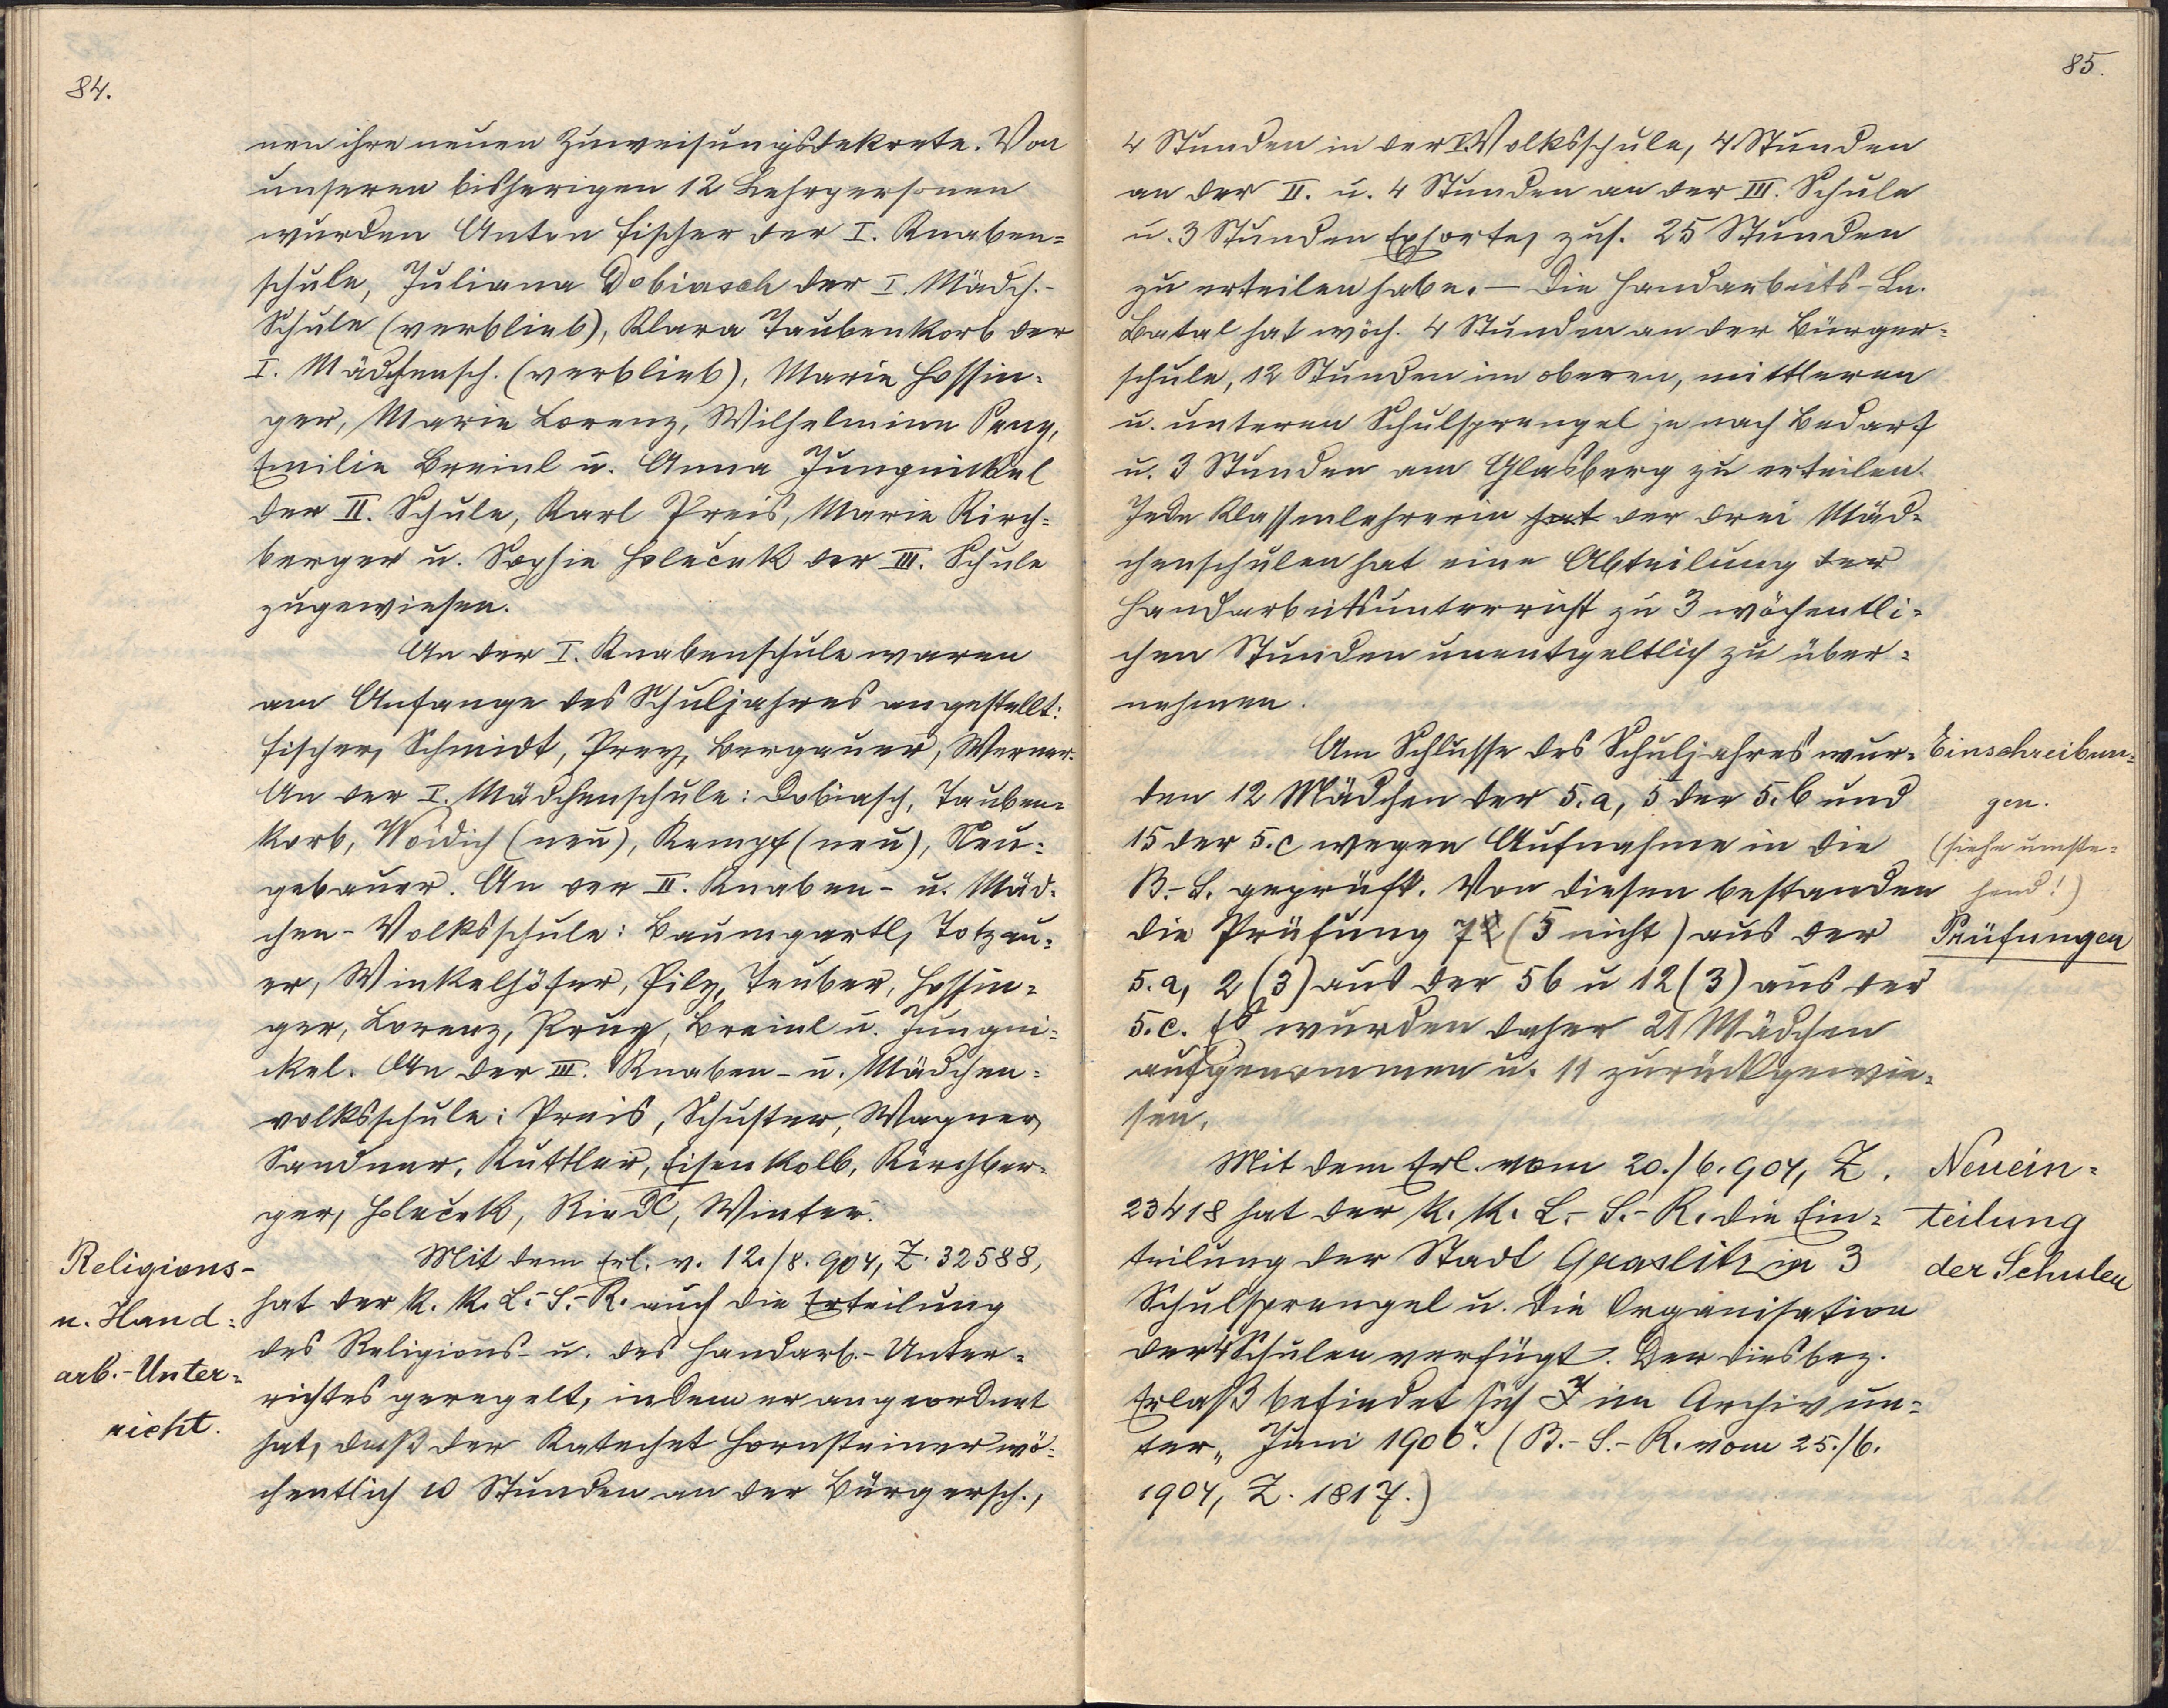 84.
nen ihre neuen Zuweisungsdekrete. Von
unseren bisherigen 12 Lehrpersonen
wurden Anton Fischer der I. Knaben=
schule, Juliana Dobiasch der I. Mädch.-
Schule (verblieb), Klara Taubenkorb der
I. Mädchensch. (verblieb), Marie Hossin-
ger, Marie Lorenz, Wilhelmine
Emilie Breinl u. Anna Jungnickel
der II. Schule, Karl Preis, Marie Kirch=
berger u. Sophie Holeček der III. Schule
zugewiesen.
An der I. Knabenschule waren
am Anfange des Schuljahres angestellt:
Fischer, Schmidt, Prey, Bergauer, Werner.
An der I. Mädchenschule: Dobiasch, Tauben=
korb, Woidich (neu), Kempf (neu), Neu=
gebauer. An der II. Knaben- u. Mäd-
chen-Volksschule: Baumgartl, Totzau=
er, Winkelhöfer, Pilz, Teuber, Hossin=
ger, Lorenz, Breinl u. Jungni=
ckel. An der III. Knaben- u. Mädchen=
volksschule: Preis, Schuster, Wagner,
Sandner, Kuttler, Eisenkolb, Kirchber=
ger, Holeček, Riedl, Winter.
Religions-
u. Hand=
arb.-Unter=
richt.
Mit dem Erl. v. 12./8. 904, Z. 32588,
hat der k. k. L.-S.-R. auch die Erteilung
des Religions- u. des Handarb.-Unter=
richtes geregelt, indem er angeordnet
hat, daß der Katechet Hornsteiner wö=
chentlich 10 Stunden an der Bürgersch.,
85.
4 Stunden in der I. Volksschule, 4 Stunden
an der II. u. 4 Stunden an der III. Schule
u. 3 Stunden Exhorte, zus. 25 Stunden
zu erteilen habe. — Die Handarbeits-Ln.
Batal hat wöch. 4 Stunden an der Bürger=
schule, 12 Stunden im oberen, mittleren
u. unteren Schulsprengel je nach Bedarf
u. 3 Stunden am Glasberg zu erteilen.
Jede Klassenlehrerin hat der drei Mäd-
chenschulen hat eine Abteilung der
Handarbeitsunterricht zu 3 wöchentli=
chen Stunden unentgeltlich zu über=
nehmen.
Am Schlusse des Schuljahres wur-
den 12 Mädchen der 5.a, 5 der 5.b und
15 der 5.c wegen Aufnahme in die
B.-S. geprüft. Von diesen bestanden
die Prüfung 7 (5 nicht) aus der
5.a, 2 (3) aus der 5b u 12 (3) aus der
5.c. Es wurden daher 21 Mädchen
aufgenommen u. 11 zurückgewie=
sen.
Einschreibun=
gen.
(siehe umste=
hend!)
Prüfungen
Mit dem Erl. vom 20./6. 904, Z.
23418 hat der k. k. L.-S.-R. die Ein=
teilung der Stadt Graslitz in 3
Schulsprengel u. die Organisation
der 4 Schulen verfügt. Der diesbez.
Erlaß befindet sich im Archiv un=
ter „Juni 1906“. (B.-S.-R. vom 25./6.
1904, Z. 1817.)
Neuein=
teilung
der Schulen